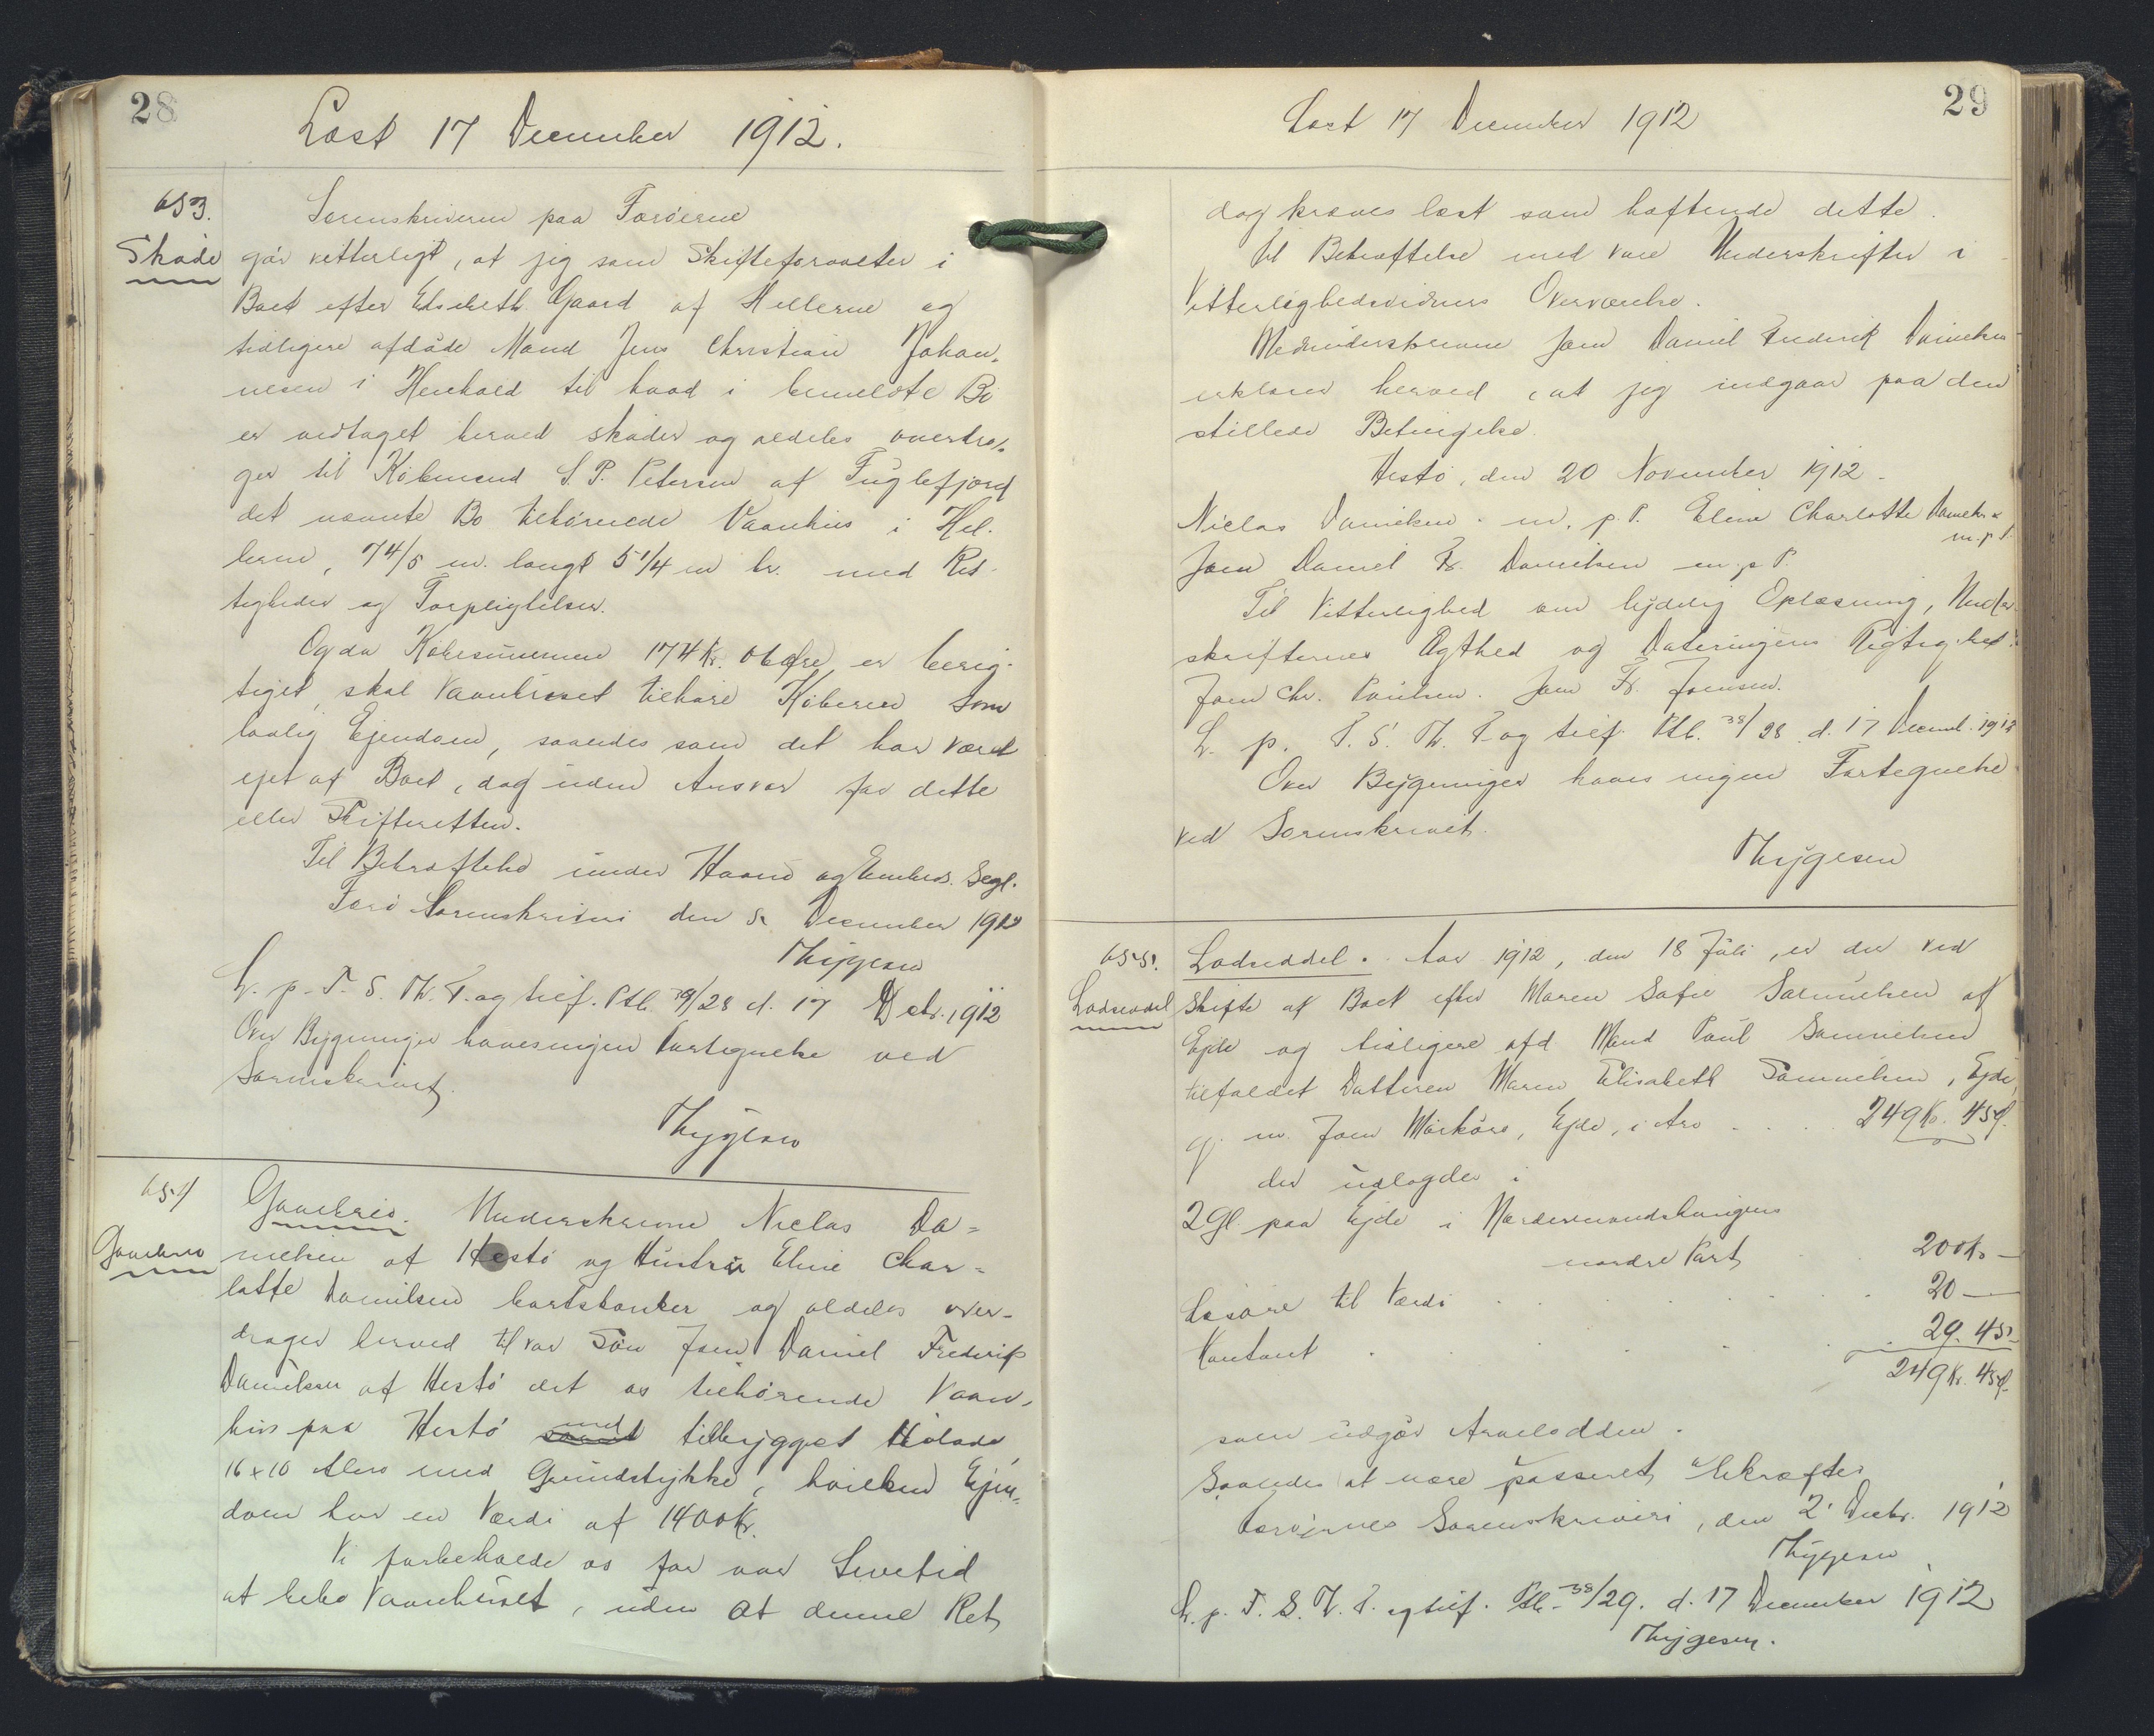 28
Læst 17 December 1912.
653.
Skøde
Sorenskriveren paa Færøerne
gør vitterligt, at jeg som Skifteforvalter i
Boet efter Elsebeth Gaard af Hellerne og
tidligere afdøde Mand Jens Christian Johan-
nesen i Henhold til hvad i bemeldte Bo
er vedtaget herved skøder og aldeles overdra-
ger til Købmand S. P. Petersen af Fuglefjord
det nævnte Bo tilhørende Vaanhus i Hel-
lerne, 7 4/5 m. langt 5 1/4 m br. med Ret-
tigheder og Forpligtelser.
Og da Købesummen 174 Kr. 06 Øre er berig-
tiget, skal Vaanhuset tilhøre Køberen som
lovlig Ejendom, saaledes som det har været
ejet af Boet, dog uden Ansvar for dette
eller Skifteretten.
Til Bekræftelse under Haand og Embeds Segl.
Færø Sorenskriveri den 5 December 1912
Thygesen
L. p. F. S. Th. P. og tilf. Ptb. 39/28 d. 17 Dcbr. 1912
Over Bygninger haves ingen Fortegnelse ved
Sorenskriveriet.
Thygesen
654
Gavebrev
Gavebrev. Underskrevne Niclas Da=
nielsen af Hestø og Hustru Eline Char=
lotte Danielsen bortskænker og aldeles over-
drager herved til vor Søn Joen Daniel Frederik
Danielsen af Hestø det os tilhørende Vaan-
hus paa Hestø samt med tilbygget Hølade
16 x 10 Alen med Grundstykke, hvilken Ejen-
dom har en Værdi af 1400 Kr.
Vi forbeholde os for vor Levetid
at bebo Vaanhuset, uden at denne Ret
29
Læst 17 December 1912
dog kræves læst som hæftende dette.
Til Bekræftelse med vore Underskrifter i
Vitterlighedsvidners Overværelse.
Medunderskrevne Joen Daniel Frederik Danielsen
erklærer herved, at jeg indgaar paa den
stillede Betingelse.
Hestø, den 20 November 1912.
Niclas Danielsen m. p. P. Eline Charlotte Danielsen
m. p. P.
Joen Daniel Fr. Danielsen m. p. P.
Til Vitterlighed om lydelig Oplæsning, Under-
skrifternes Ægthed og Dateringens Rigtighed:
Joen Chr. Poulsen. Joen Fr. Joensen.
L. p. F. S. Th. P. og tilf. Ptb. 38/28 d. 17 Decemb. 1912
Over Bygninger haves ingen Fortegnelse
ved Sorenskriveriet.
Thygesen
655.
Lodseddel
Lodseddel. Aar 1912, den 18 Juli, er der ved
Skifte af Boet efter Maren Sofie Samuelsen af
Ejde og tidligere afd Mand Poul Samuelsen
tilfaldet Datteren Maren Elisabeth Samuelsen, Ejde,
g. m. Joen Mørkøre, Ejde, i Arv . . . 249 Kr. 45 Ø.
der udlagdes i
2 Gl. paa Ejde i Nordenvandshaugens
nordre Part . 200 Kr —
Løsøre til Værdi . . . . 20 —
Kontant . . . . 29. 45 —
249 Kr. 45 Ø.
som udgør Arvelodden.
Saaledes at være passeret, bekræftes
Færøernes Sorenskriveri, den 2 Decbr. 1912
Thygesen
L. p. F. S. Th. P. og tilf. Ptb. 38/29. d. 17 December 1912
Thygesen.